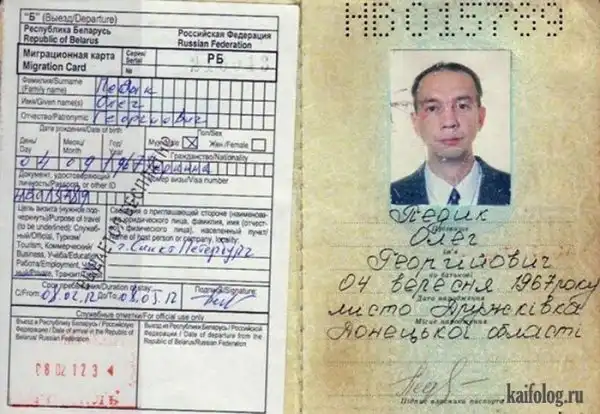 "Б" (Выезд/Departure)
Республика Беларусь
Republic of Belarus
Российская Федерация
Russian Federation
Миграционная карта
Migration Card
Серия/
Serial
РБ
№
Фамилия/Surname
(Family name)
Педик
Имя/Given name(s)
Олег
Отчество/Patronymic
Георгиевич
Дата рождения/Date of birth
Пол/Sex
День/
Day
Месяц/
Month
Год/
Year
Муж./Male
Жен./Female
04 09 1967
Гражданство/Nationality
Украина
Документ, удостоверяющий
личность/Passport or other ID
Номер визы/Visa number
Цель визита (нужное под-
черкнуть)/Purpose of travel
(to be underlined): Служеб-
ный/Official, Туризм/
Tourism, Коммерческий/
Business, Учеба/Education
Работа/Employment,
Частный/Private, Транзит/
Сведения о приглашающей стороне (наименова-
ние юридического лица, фамилия, имя, (отчест-
во) физического лица), населенный пункт/
Name of host person or company, locality:
г. Санкт-Петербург
Срок пребывания/Duration of stay:
Подпись/Signature:
С/From: 08.02.12 До/To: 08.05.12
Служебные отметки/For official use only
Въезд в Республику Беларусь/Российскую
Федерацию / Date of arrival in the Republic of
Belarus/Russian Federation
Выезд из Республики Беларусь/Российской
Федерации / Date of departure from the Republic of
Belarus/Russian Federation
08 02 12 3
НВ015789
Педик
Прізвище
Олег
Ім'я
Георгійович
По батькові
04 вересня 1967 року
Дата народження
місто Дружківка
Місце народження
Донецької області
Підпис власника паспорта
kaifolog.ru